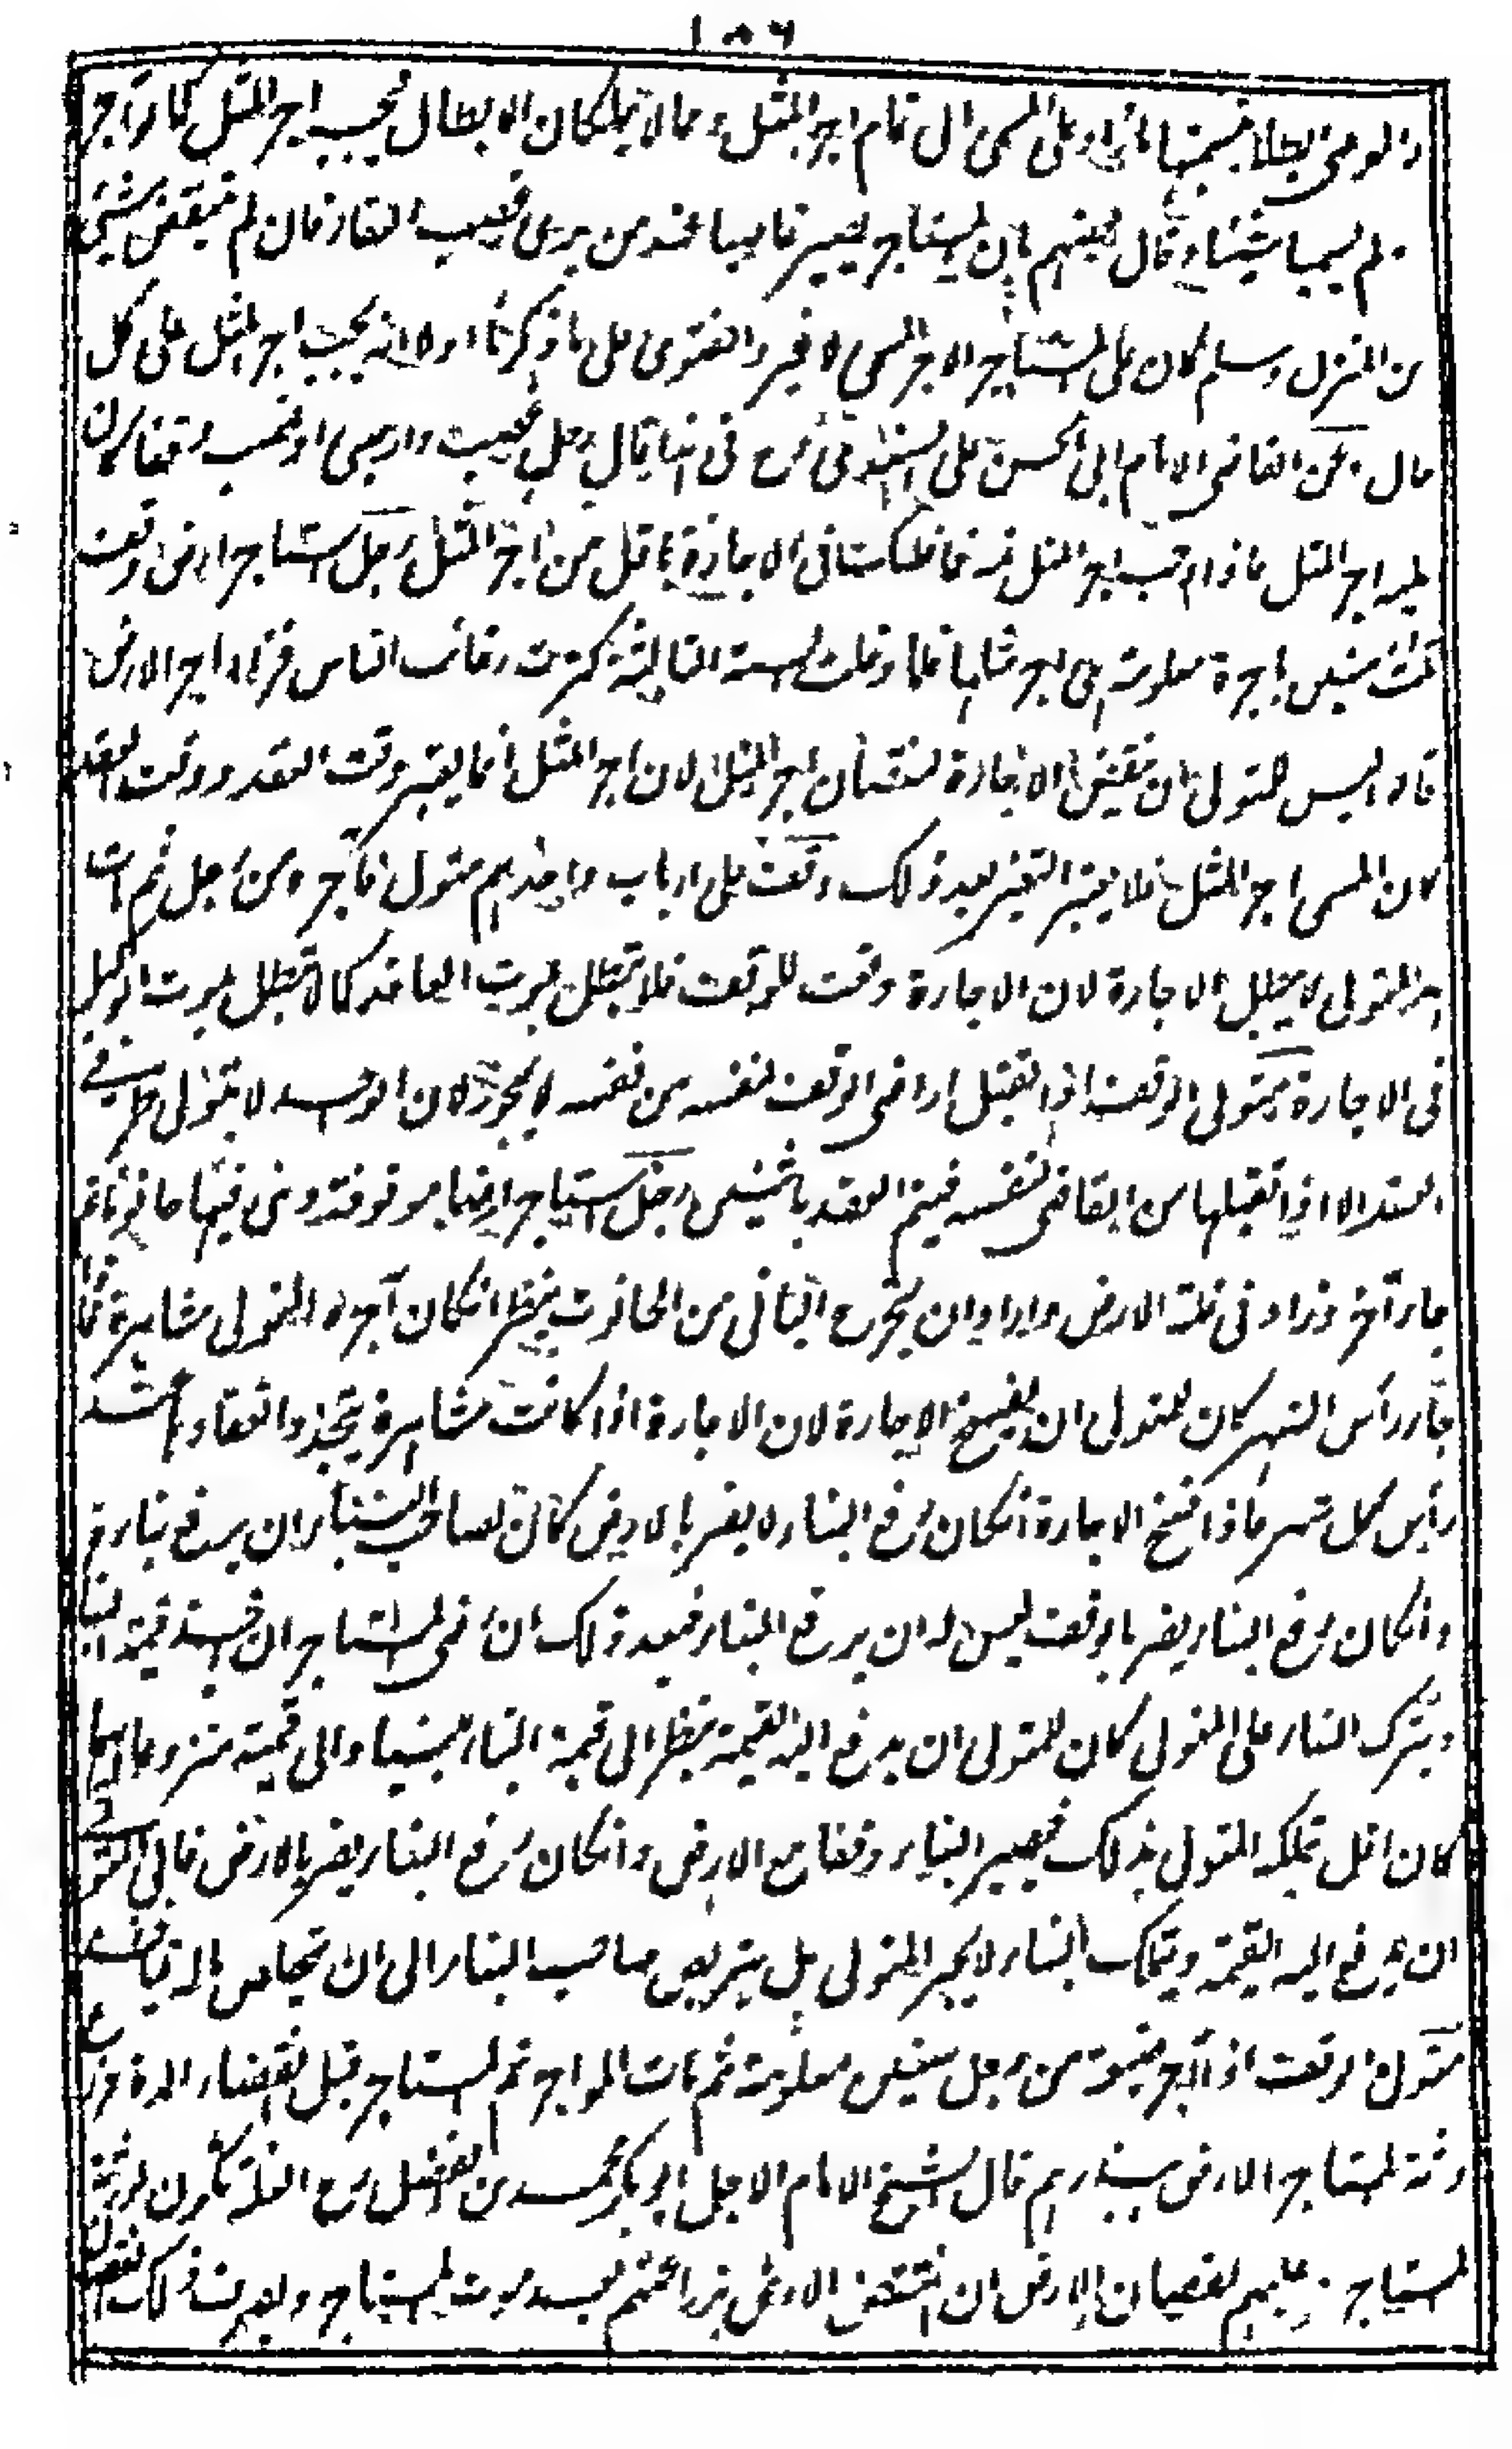 ١٥٦
والوصي ابطلا بتسميتهما ما زاد على المسمى الى تمام اجر المثل وهما لا يملكان الابطال فيجب اجر المثل كما لو اجر
ولم يسميا شيئا وقال بعضهم بان المستاجر يصير غاصبا عند من يرى غصب العقار فان لم ينتقص شيئ
من المنزل وسلم كان على المستاجر الاجر المسمى لا غير والفتوى على ما ذكرنا اولا انه يجب اجر المثل على كل
حال وعن القاضي الامام ابي الحسن على السغدي رح في هذا قال رجل غصب دار صبى او غصب وقفا كان
عليه اجر المثل فاذا وجب اجر المثل ثمه فما ظنك في الاجارة باقل من اجر المثل رجل استاجر ارض وقف
ثلث سنين باجرة معلومة هي اجر مثلها فلما دخلت السنة الثالثة كثرت رغائب الناس فزاد اجر الارض
قالوا ليس للمتولي ان ينقض الاجارة لنقصان اجر المثل لان اجر المثل انما يعتبر وقت العقد ووقت العقد
كان المسمى اجر المثل فلا يعتبر التغير بعد ذلك وقف على ارباب واحدهم متول فآجر ومن رجل ثم مات
هذا المتولي لا يبطل الاجارة لان الاجارة وقعت للوقف فلا تبطل بموت العاقد كما لا تبطل بموت الوكيل
في الاجارة متولى الوقف اذا تقبل اراضى الوقف لنفسه من نفسه لا يجوز لان الواحد لا يتولى طرفي
العقد الا اذا تقبلها من القاضى لنفسه فيتم العقد باثنين رجل استاجر ارضا موقوفة وبنى فيها حانوتا ثم
جاء آخر وزاد في غلة الارض واراد ان يخرج الباني من الحانوت ينظر انكان آجره المتولى مشاهرة فاذا
جاء رأس الشهر كان للمتولى ان يفسخ الاجارة لان الاجارة اذا كانت مشاهرة يتجدد انعقادها عند
رأس كل شهر فاذا فسخ الاجارة انكان رفع البناء لا يضر بالارض كان لصاحب البناء ان يرفع بناءه
وانكان رفع البناء يضر بالوقف ليس له ان يرفع البناء فبعد ذلك ان رضى المستاجر ان ياخذ قيمة البناء
ويترك البناء على المتولى كان للمتولى ان يدفع اليه القيمة ينظر الى قيمة البناء مبنيا والى قيمته منزوعا ايهما
كان اقل تملكه المتولى بذلك فيصير البناء وقفا مع الارض وانكان رفع البناء يضر بالارض فابى المتولي
ان يدفع اليه القيمة ويتملك البناء لا يجبر المتولى بل يتربص صاحب البناء الى ان يتخلص ماله فياخذه
متولى الوقف اذا آجر ضيعة من رجل سنين معلومة ثم مات المواجر ثم المستاجر قبل انقضاء المدة فزرع
ورثة المستاجر الارض ببذرهم قال الشيخ الامام الاجل ابو بكر محمد بن الفضل رح الغلة تكون لورثة
المستاجر وعليهم نقصان الارض ان انتقص الارض بزراعتهم بعد موت المستاجر ويصرف ذلك النقصان